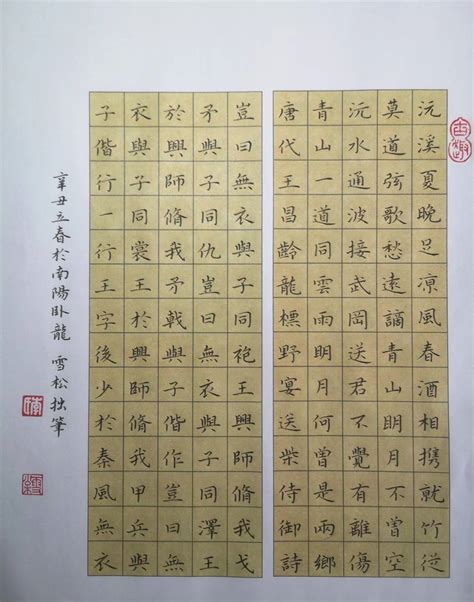 沅溪夏晚足凉風春酒相携就竹從
莫道弦歌愁遠謫青山明月不曾空
沅水通波接武岡送君不覺有離傷
青山一道同雲雨明月何曾是兩鄉
唐代王昌齡龍標野宴送柴侍御詩
豈曰無衣與子同袍王興師脩我戈
矛與子同仇豈曰無衣與子同澤王
於興師脩我矛戟與子偕作豈曰無
衣與子同裳王於興師脩我甲兵與
子偕行一行王字後少於秦風無衣
辛丑立春於南陽卧龍 雪松拙筆